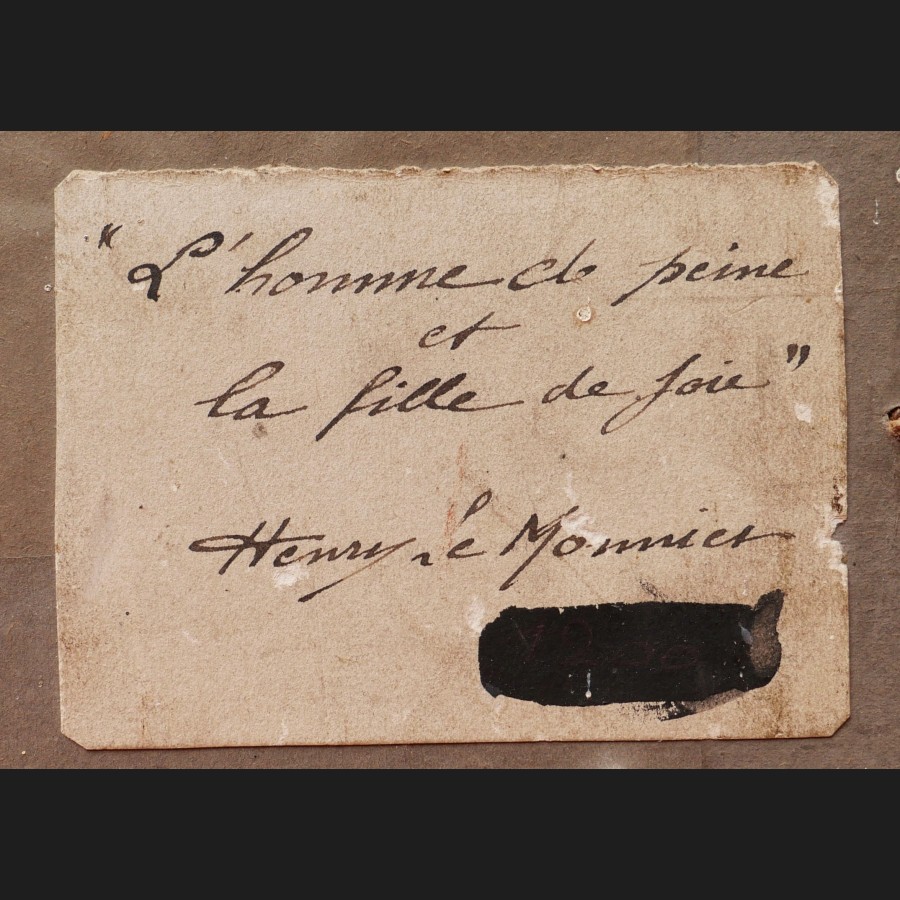 "L'homme de peine
et
la fille de joie"
Henry le Monnier